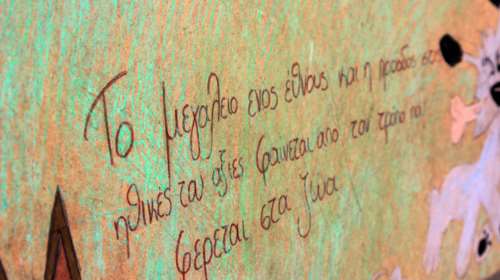 Το μεγαλείο ενος έθνους και η πρόοδος στις
ηθικες του αξιες φαινεται απο τον τρόπο που
φερεται στα ζώα